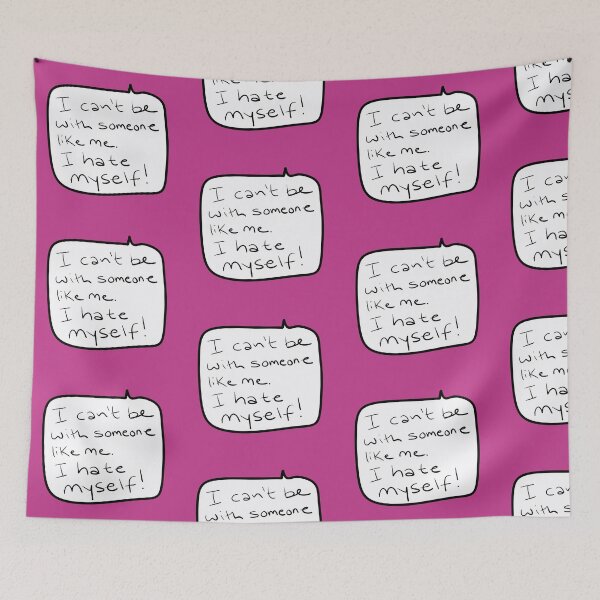 I can't be
with someone
like me.
I hate
myself!
I hate
myself!
I can't be
with someone
like me.
I hate
myself!
like me.
I ha
myse
I can't be
with someone
like me.
I hate
myself!
I can't
with so
like me.
I ha
myse
I can't be
with someone
like me.
I hate
myself!
I can't be
with someone
like me.
I hate
myself!
I can't be
with someone
like me.
I hate
myself!
I can't
with so
like me.
I ha
myse
I can't be
with someone
like me.
I hate
myself!
I can't be
with someone
like me.
I hate
myself!
I can't be
with someone
I can't
with so